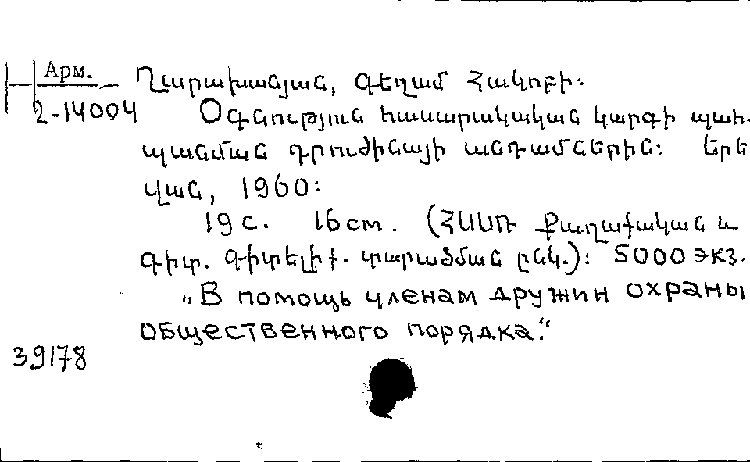 Арм.
2-14004
Ղարախանյան, Գեղամ Հակոբի։
Օգնություն հասարակական կարգի պահ-
պանման դրուժինայի անդամներին։ Երե
վան, 1960։
19 с. 16 cm. (ՀՍՍՌ Քաղաքական և
գիտ. գիտելիք. տարածման ընկ.)։ 5000 экз.
„В помощь членам дружин охраны
общественного порядка.“
39178